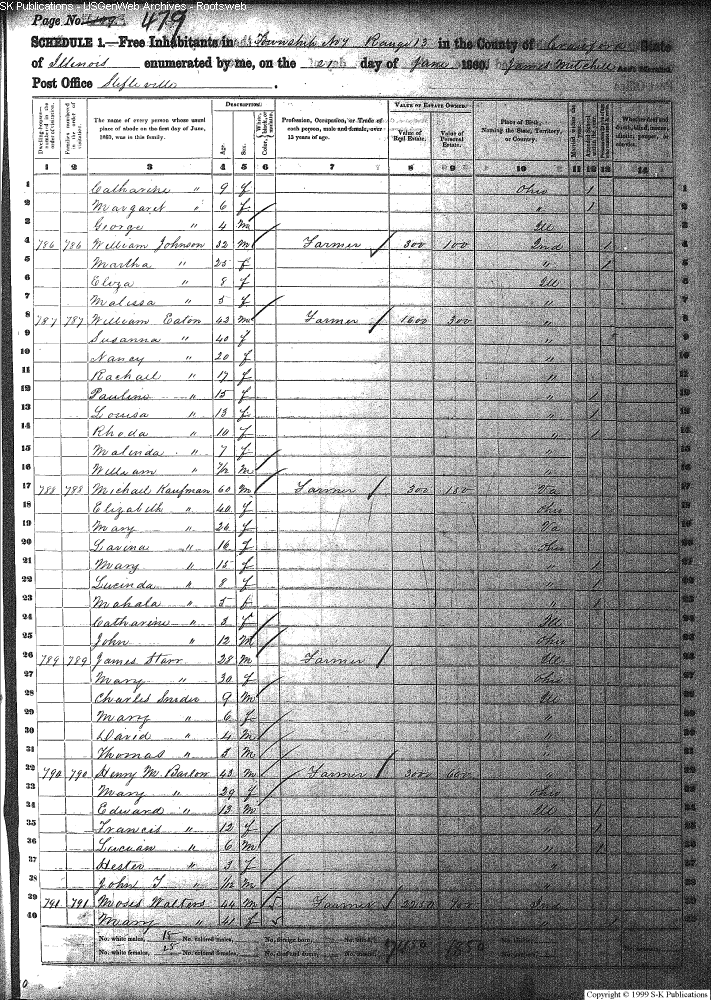 SK Publications - USGenWeb Archives - Rootsweb
Page No. 479
SCHEDULE 1.—Free Inhabitants in Township No 7 Range 13 in the County of Crawford State
of Illinois enumerated by me, on the 21 day of June 1860. James Mitchell Ass't Marshal.
Post Office
DESCRIPTION. VALUE OF ESTATE OWNED.
Dwelling-houses—numbered in the order of visitation. Families numbered in the order of visitation. The name of every person whose usual place of abode on the first day of June, 1860, was in this family. Age. Sex. Color, White, black, or mulatto. Profession, Occupation, or Trade of each person, male and female, over 15 years of age. Value of Real Estate. Value of Personal Estate. Place of Birth, Naming the State, Territory, or Country.
1 2 3 4 5 6 7 8 9 10 11 12 13 14
1 Catharine " 9 f Ohio 1
2 Margaret " 6 f " 1
3 George " 4 m Ill
4 786 786 William Johnson 32 m Farmer 300 100 Ind 1
5 Martha " 25 f " 1
6 Eliza " 8 f Ill
7 Malissa " 5 f "
8 787 787 William Eaton 43 m Farmer 1600 300 "
9 Susanna " 40 f "
10 Nancy " 20 f "
11 Rachael " 17 f "
12 Pauline " 15 f " 1
13 Louisa " 13 f " 1
14 Rhoda " 10 f " 1
15 Malinda " 7 f "
16 William " m "
17 788 788 Michael Kaufman 60 m Farmer 300 150 Va
18 Elizabeth " 40 f Ohio
19 Mary " 26 f Va
20 Lavina " 16 f Ohio
21 Mary " 15 f " 1
22 Lucinda " 8 f " 1
23 Mahala " 5 f " 1
24 Catharine " 3 f Ill
25 John " 12 m Ohio
26 789 789 James Starr 28 m Farmer Ill
27 Mary " 30 f Ohio
28 Charles Snider 9 m Ill
29 Mary " 6 f "
30 David " 4 m "
31 Thomas " 3 m "
32 790 790 Henry M. Barlow 43 m Farmer 3000 600 "
33 Mary " 29 f Ohio
34 Edward " 13 m Ill 1
35 Francis " 12 f " 1
36 Lucian " 6 m " 1
37 Hester " 3 f
38 John T " m
39 791 791 Moses Walters 44 m Farmer 2250 700 Ind
40 Mary " 41 f
No. white males, 15 No. colored males, No. foreign born,
No. white females, 25 No. colored females, 7450 1850
Copyright © 1999 S-K Publications